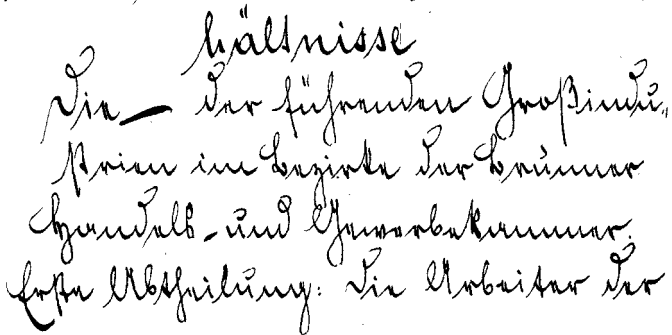 hältnisse
Die — der führenden Großindu-
strien im Bezirke der Brünner
Handels- und Gewerbekammer.
Erste Abtheilung: Die Arbeiter der